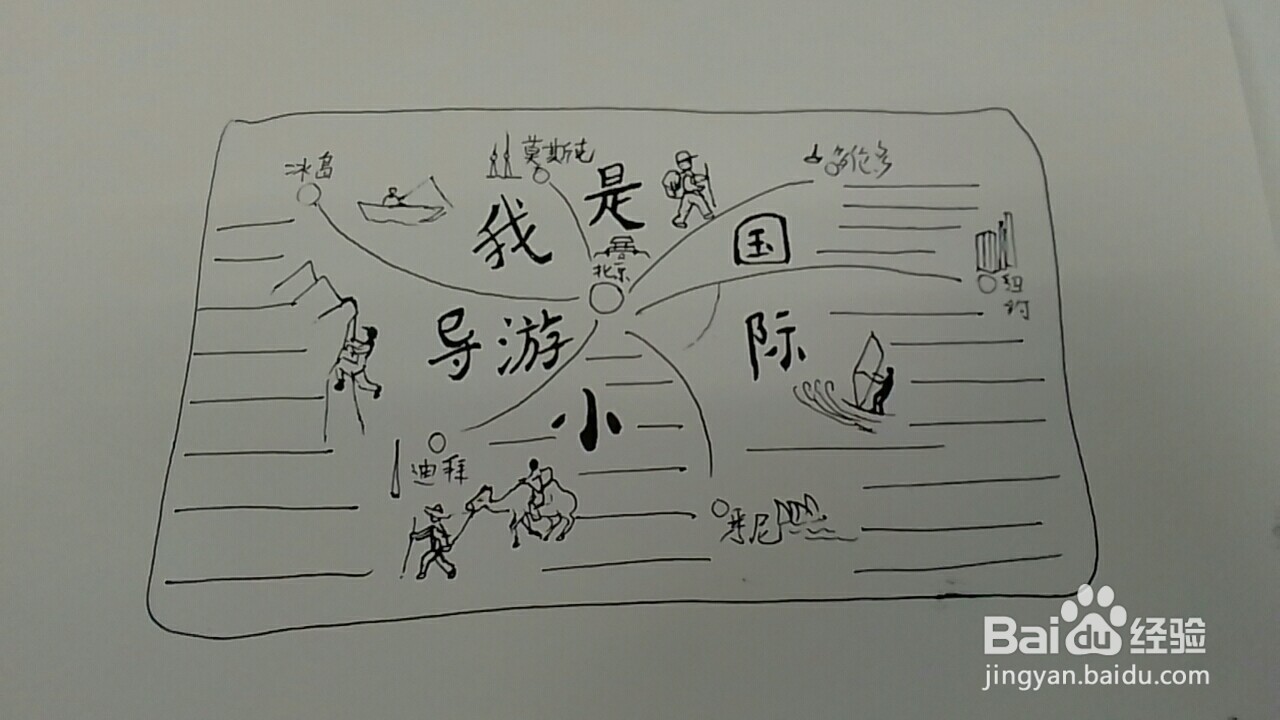 冰岛
莫斯科
多伦多
我是国际小导游
北京
纽约
迪拜
悉尼
Baidu 经验
jingyan.baidu.com